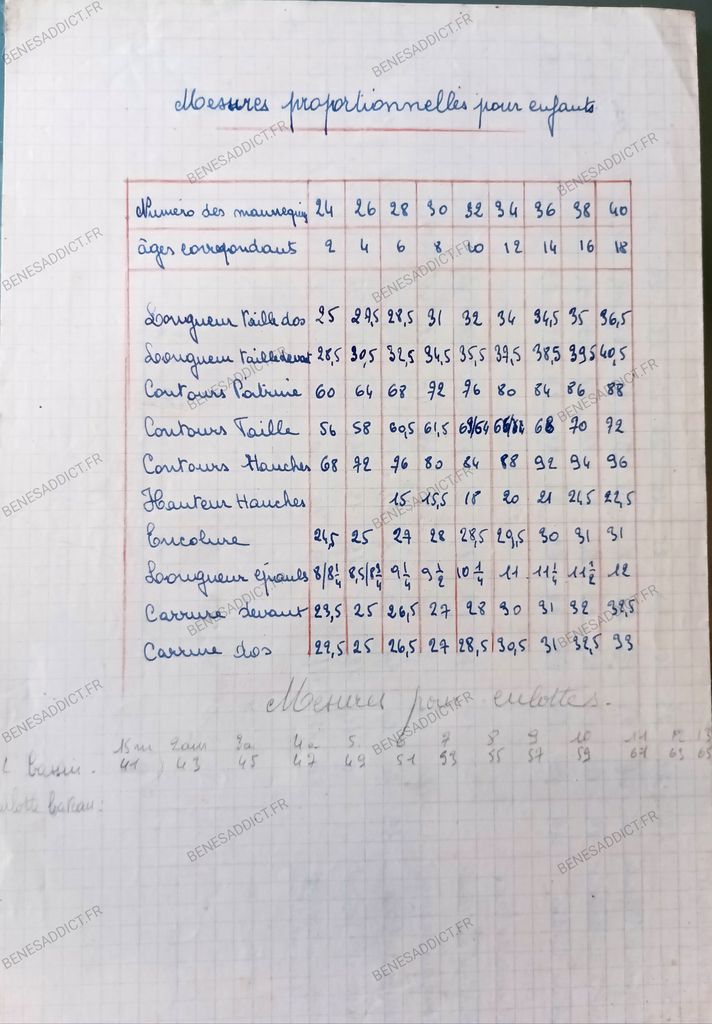 Mesures proportionnelles pour enfants
Numéro des mannequins 24 26 28 30 32 34 36 38 40
âges correspondants 2 4 6 8 10 12 14 16 18
Longueur taille dos 25 27,5 28,5 31 32 34 34,5 35 36,5
Longueur taille devant 28,5 30,5 32,5 34,5 35,5 37,5 38,5 39,5 40,5
Contours Poitrine 60 64 68 72 76 80 84 86 88
Contours Taille 56 58 60,5 61,5 68 70 72
Contours Hanches 68 72 76 80 84 88 92 94 96
Hauteur Hanches 15 15,5 18 20 21 21,5 22,5
Encolure 24,5 25 27 28 28,5 29,5 30 31 31
Longueur épaules 8/8 1/4 8,5/8 3/4 9 1/4 9 1/2 10 1/4 11 11 1/4 11 1/2 12
Carrure devant 23,5 25 26,5 27 28 30 31 32 32,5
Carrure dos 22,5 25 26,5 27 28,5 30,5 31 32,5 33
Mesures pour culottes.
2 ans 3 a 4 a 5 6 7 8 9 10 11
bassin. 41 43 45 47 49 51 53 55 57 59 63 65
BENESADDICT.FR